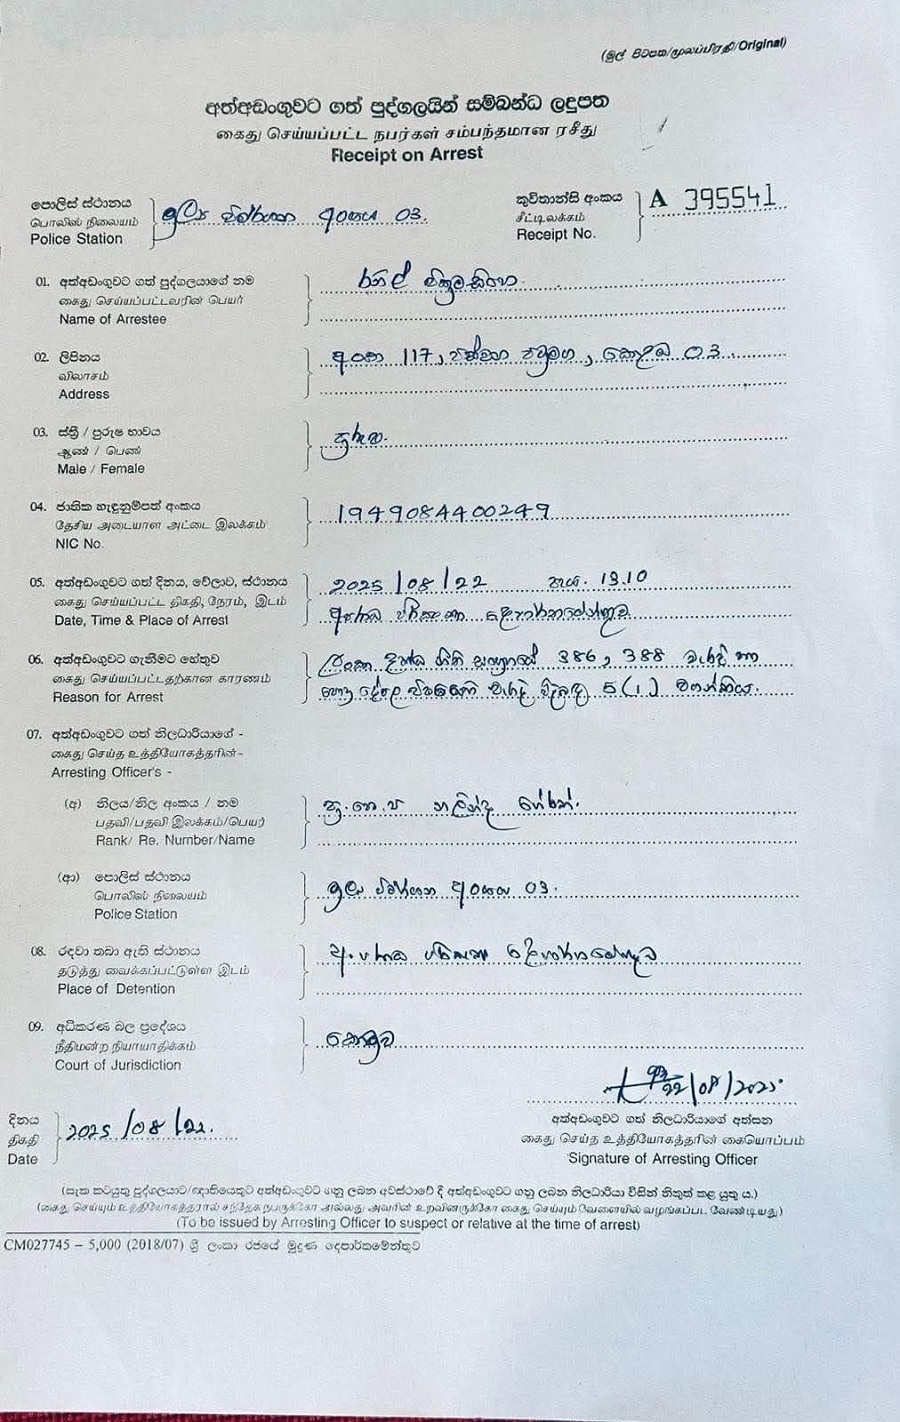 (මුල් පිටපත/மூலப்பிரதி/Original)
අත්අඩංගුවට ගත් පුද්ගලයින් සම්බන්ධ ලදුපත
கைது செய்யப்பட்ட நபர்கள் சம்பந்தமான ரசீது
Receipt on Arrest
පොලිස් ස්ථානය
பொலிஸ் நிலையம்
Police Station
මූල්‍ය විමර්ශන අංශය 03.
කුවිතාන්සි අංකය
சீட்டிலக்கம்
Receipt No.
A 395541
01. අත්අඩංගුවට ගත් පුද්ගලයාගේ නම
கைது செய்யப்பட்டவரின் பெயர்
Name of Arrestee
රනිල් වික්‍රමසිංහ.
02. ලිපිනය
விலாசம்
Address
අංක 117, පස්වන පටුමග, කොළඹ 03.
03. ස්ත්‍රී / පුරුෂ භාවය
ஆண் / பெண்
Male / Female
පුරුෂ.
04. ජාතික හැඳුනුම්පත් අංකය
தேசிய அடையாள அட்டை இலக்கம்
NIC No.
1949084400249
05. අත්අඩංගුවට ගත් දිනය, වේලාව, ස්ථානය
கைது செய்யப்பட்ட திகதி, நேரம், இடம்
Date, Time & Place of Arrest
2025/08/22 පැය. 13.10
අපරාධ පරීක්ෂණ දෙපාර්තමේන්තුව
06. අත්අඩංගුවට ගැනීමට හේතුව
கைது செய்யப்பட்டதற்கான காரணம்
Reason for Arrest
ලංකා දණ්ඩ නීති සංග්‍රහයේ 386, 388 වැරදි හා
පොදු දේපල පිළිබඳ 5(1) වගන්තිය.
07. අත්අඩංගුවට ගත් නිලධාරියාගේ -
கைது செய்த உத்தியோகத்தரின் -
Arresting Officer's -
(අ) නිලය/නිල අංකය / නම
பதவி/பதவி இலக்கம்/பெயர்
Rank/ Re. Number/Name
ප්‍ර.පො.ප නලින්ද හේරත්.
(ආ) පොලිස් ස්ථානය
பொலிஸ் நிலையம்
Police Station
මූල්‍ය විමර්ශන අංශය 03.
08. රඳවා තබා ඇති ස්ථානය
தடுத்து வைக்கப்பட்டுள்ள இடம்
Place of Detention
අපරාධ පරීක්ෂණ දෙපාර්තමේන්තුව
09. අධිකරණ බල ප්‍රදේශය
நீதிமன்ற நியாயாதிக்கம்
Court of Jurisdiction
කොටුව
22/08/2025
අත්අඩංගුවට ගත් නිලධාරියාගේ අත්සන
கைது செய்த உத்தியோகத்தரின் கையொப்பம்
Signature of Arresting Officer
දිනය
திகதி
Date
2025/08/22.
(සැක කටයුතු පුද්ගලයාට/ඥාතියෙකුට අත්අඩංගුවට ගනු ලබන අවස්ථාවේ දී අත්අඩංගුවට ගනු ලබන නිලධාරියා විසින් නිකුත් කළ යුතු ය.)
(கைது செய்யும் உத்தியோகத்தரால் சந்தேக நபருக்கோ அல்லது அவரின் உறவினருக்கோ கைது செய்யும் வேளையில் வழங்கப்பட வேண்டியது)
(To be issued by Arresting Officer to suspect or relative at the time of arrest)
CM027745 – 5,000 (2018/07) ශ්‍රී ලංකා රජයේ මුද්‍රණ දෙපාර්තමේන්තුව